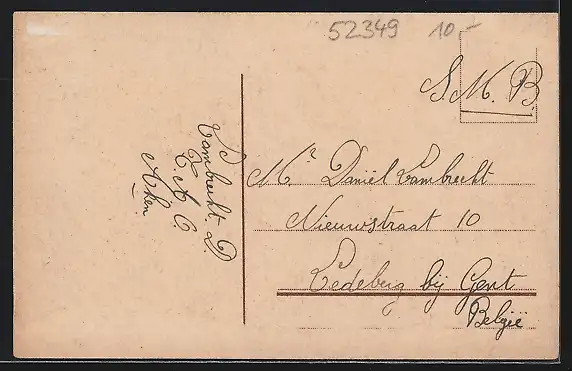 52349 10-
S.M.B.
Mr Daniël Lambrecht
Nieuwstraat 10
Ledeberg bij Gent
België
Lambrecht. D.
T A C.
Aken